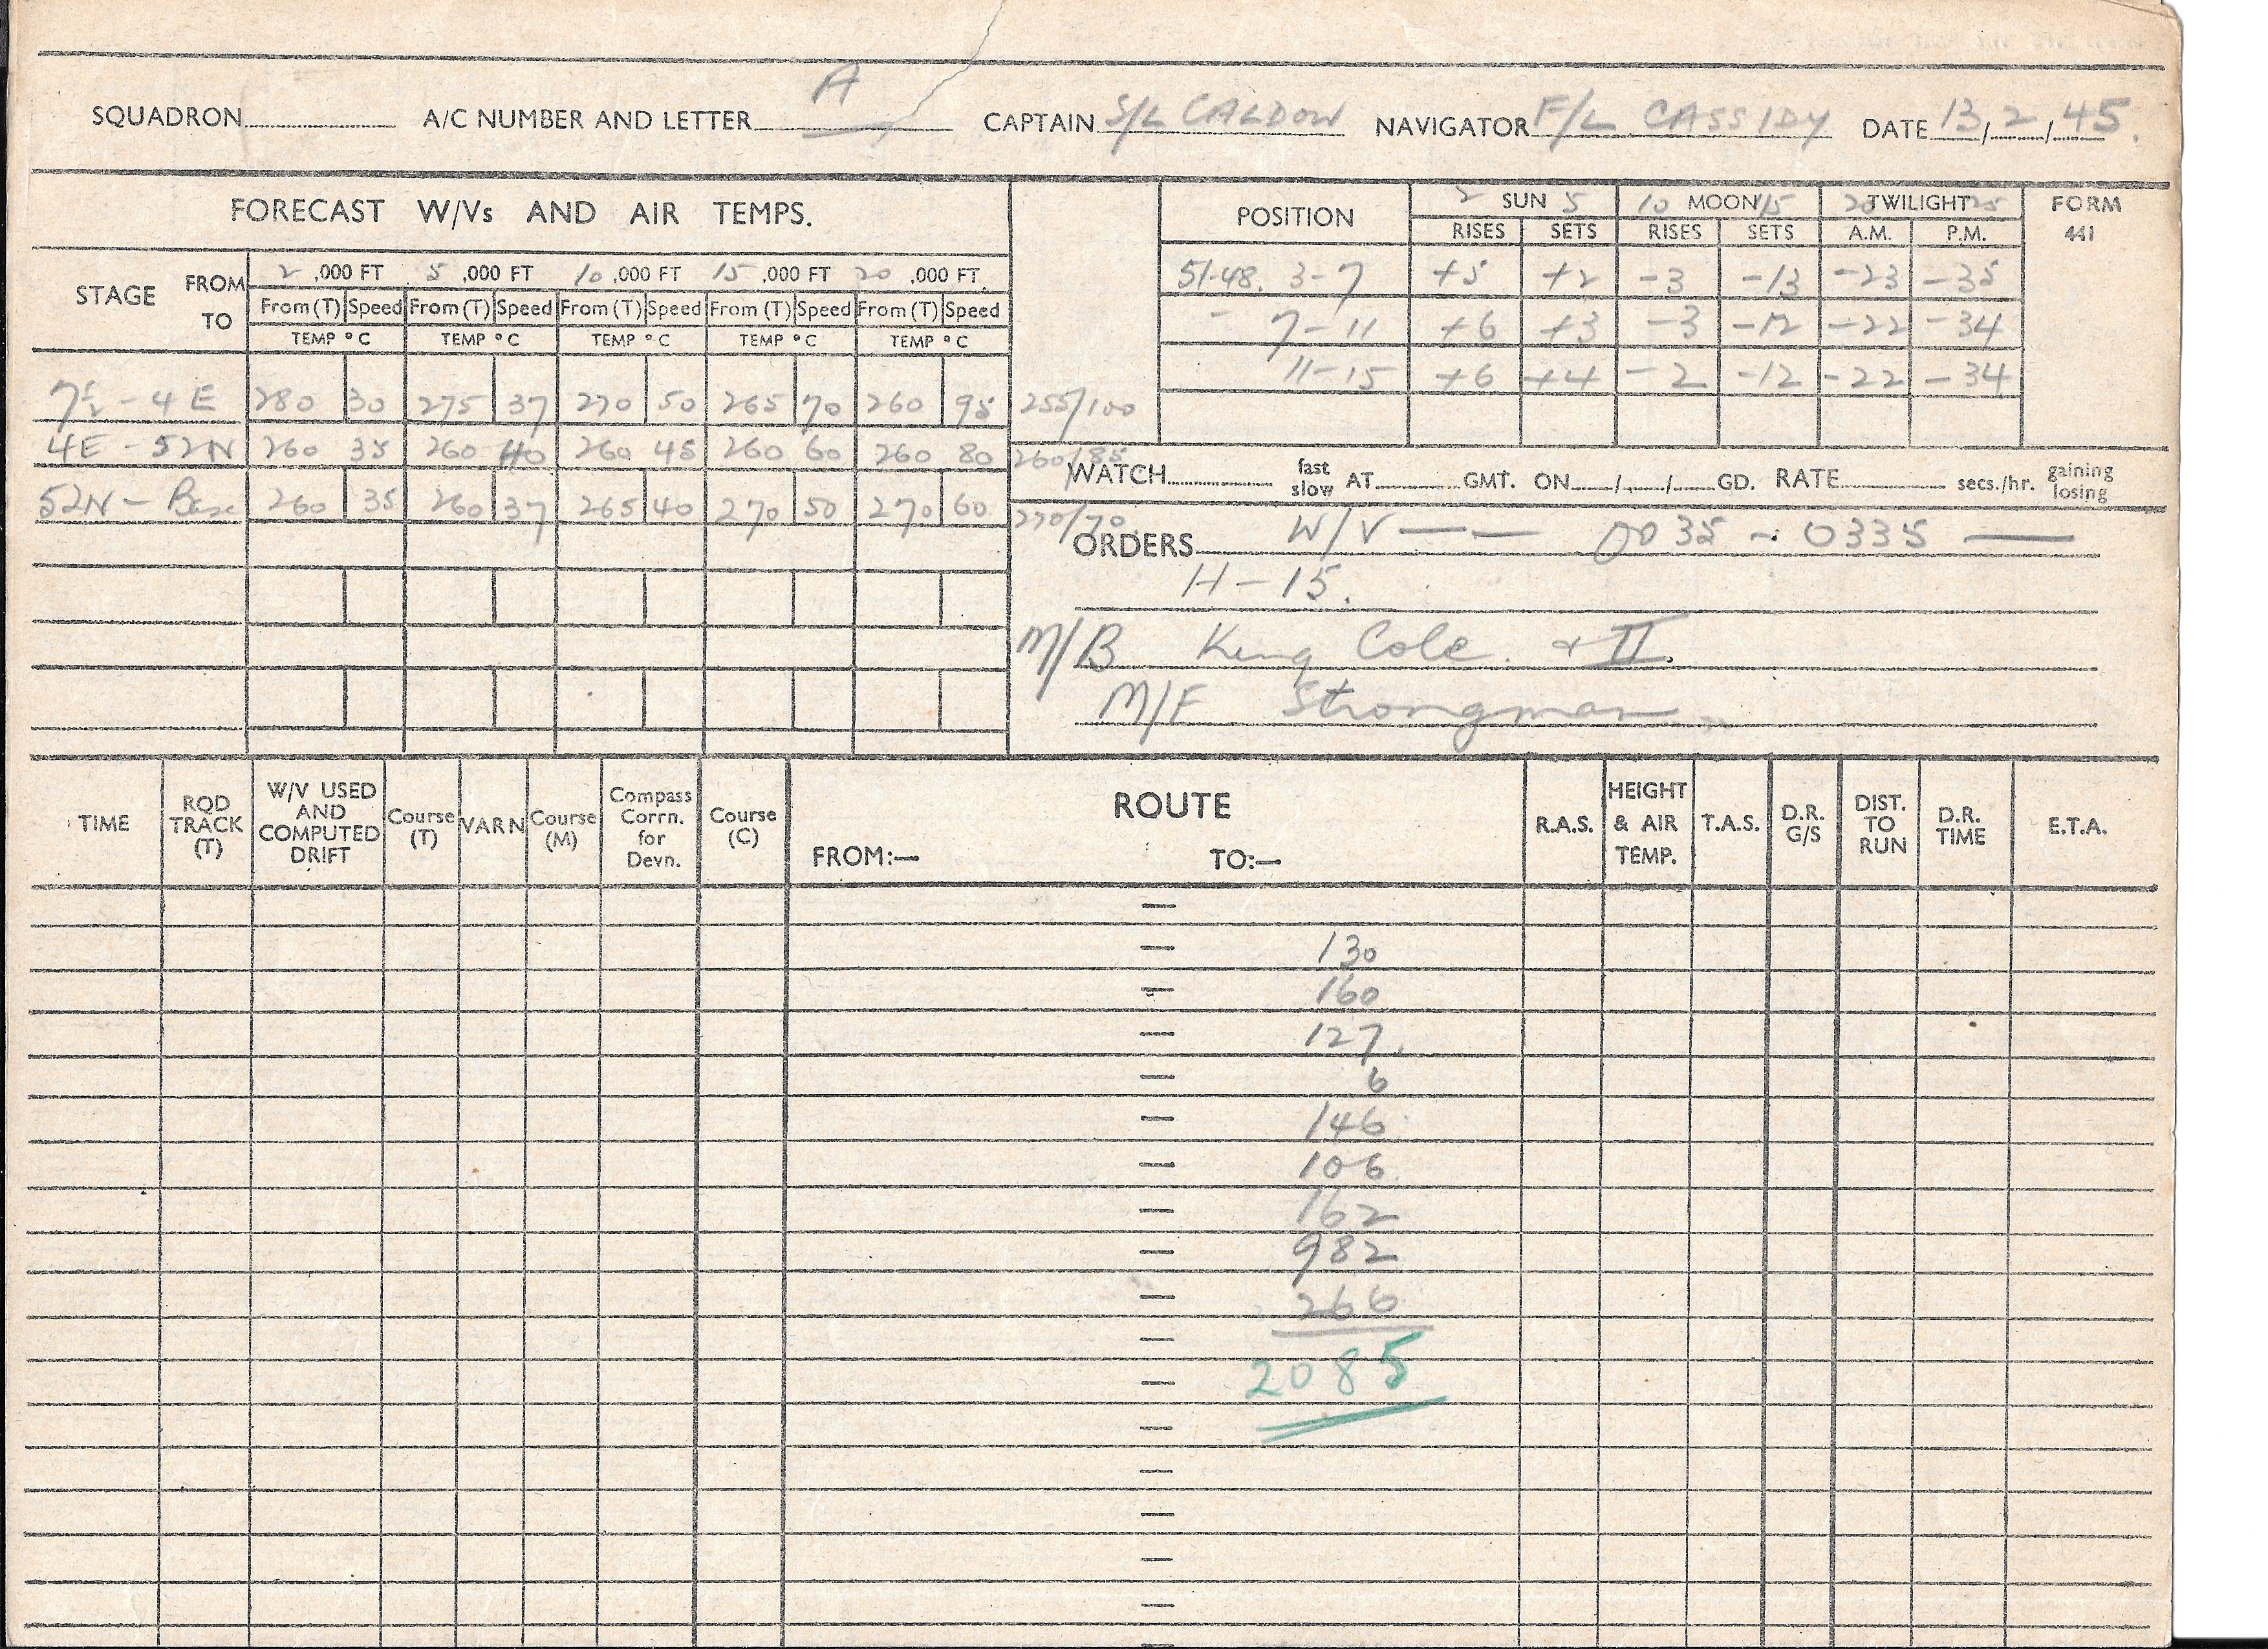 SQUADRON A/C NUMBER AND LETTER A CAPTAIN S/L CALDOW NAVIGATOR F/L CASSIDY DATE 13/2/45.
FORECAST W/Vs AND AIR TEMPS.
STAGE FROM TO
2 ,000 FT 5 ,000 FT 10 ,000 FT 15 ,000 FT 20 ,000 FT.
From (T) Speed From (T) Speed From (T) Speed From (T) Speed From (T) Speed
TEMP °C TEMP °C TEMP °C TEMP °C TEMP °C
7½ - 4 E 280 30 275 37 270 50 265 70 260 95 255/100
4E - 52N 260 35 260 40 260 45 260 60 260 80 260/85
52N - Base 260 35 260 37 265 40 270 50 270 60 270/70
POSITION 2 SUN 5 10 MOON 15 20 TWILIGHT 25 FORM 441
RISES SETS RISES SETS A.M. P.M.
51-48. 3-7 +5 +2 -3 -13 -23 -35
- 7-11 +6 +3 -3 -12 -22 -34
11-15 +6 +4 -2 -12 -22 -34
WATCH fast slow AT GMT. ON / / GD. RATE secs./hr. gaining losing
ORDERS W/V — — 0035 - 0335 —
H-15.
M/B King Cole. + II.
M/F Strongman
TIME RQD TRACK (T) W/V USED AND COMPUTED DRIFT Course (T) VARN Course (M) Compass Corrn. for Devn. Course (C) ROUTE FROM:— TO:— R.A.S. HEIGHT & AIR TEMP. T.A.S. D.R. G/S DIST. TO RUN D.R. TIME E.T.A.
—
— 130
— 160
— 127.
— 6
— 146
— 106
— 162
— 982
— 266
—
— 2085
—
—
—
—
—
—